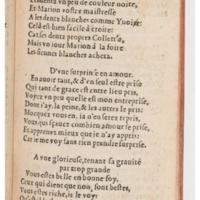 deuient vn peu de couleur noire,
Et Marion vostre maistresse
A les dents blanches comme Yuoire:
Celà est bien facile à croire:
Car ses dents propres Collette,
Mais vn iour Marion à la foire
Les siennes blanches acheta.
D'vne surprinse en amour.
En auoir tant, & d'en seul estre pris
Qui tant de grace eſt entre lieu pris,
Voyez vn peu quelle est mon entreprise,
Dont i'ay la peine, & les autres le pris:
Mocquez vous en, ia n'en serez repris,
Vous qui sçauez combien amour se prise,
Et apprenez mieux que ie n'ay appris:
Car ie me voy sans rien prendre surprise.
A vne glorieuse, tenant sa grauité
par trop grande
Vous estes belle en bonne foy,
Ceux qui dient que non, sont bestes,
Vous estes riche, ie le voy: